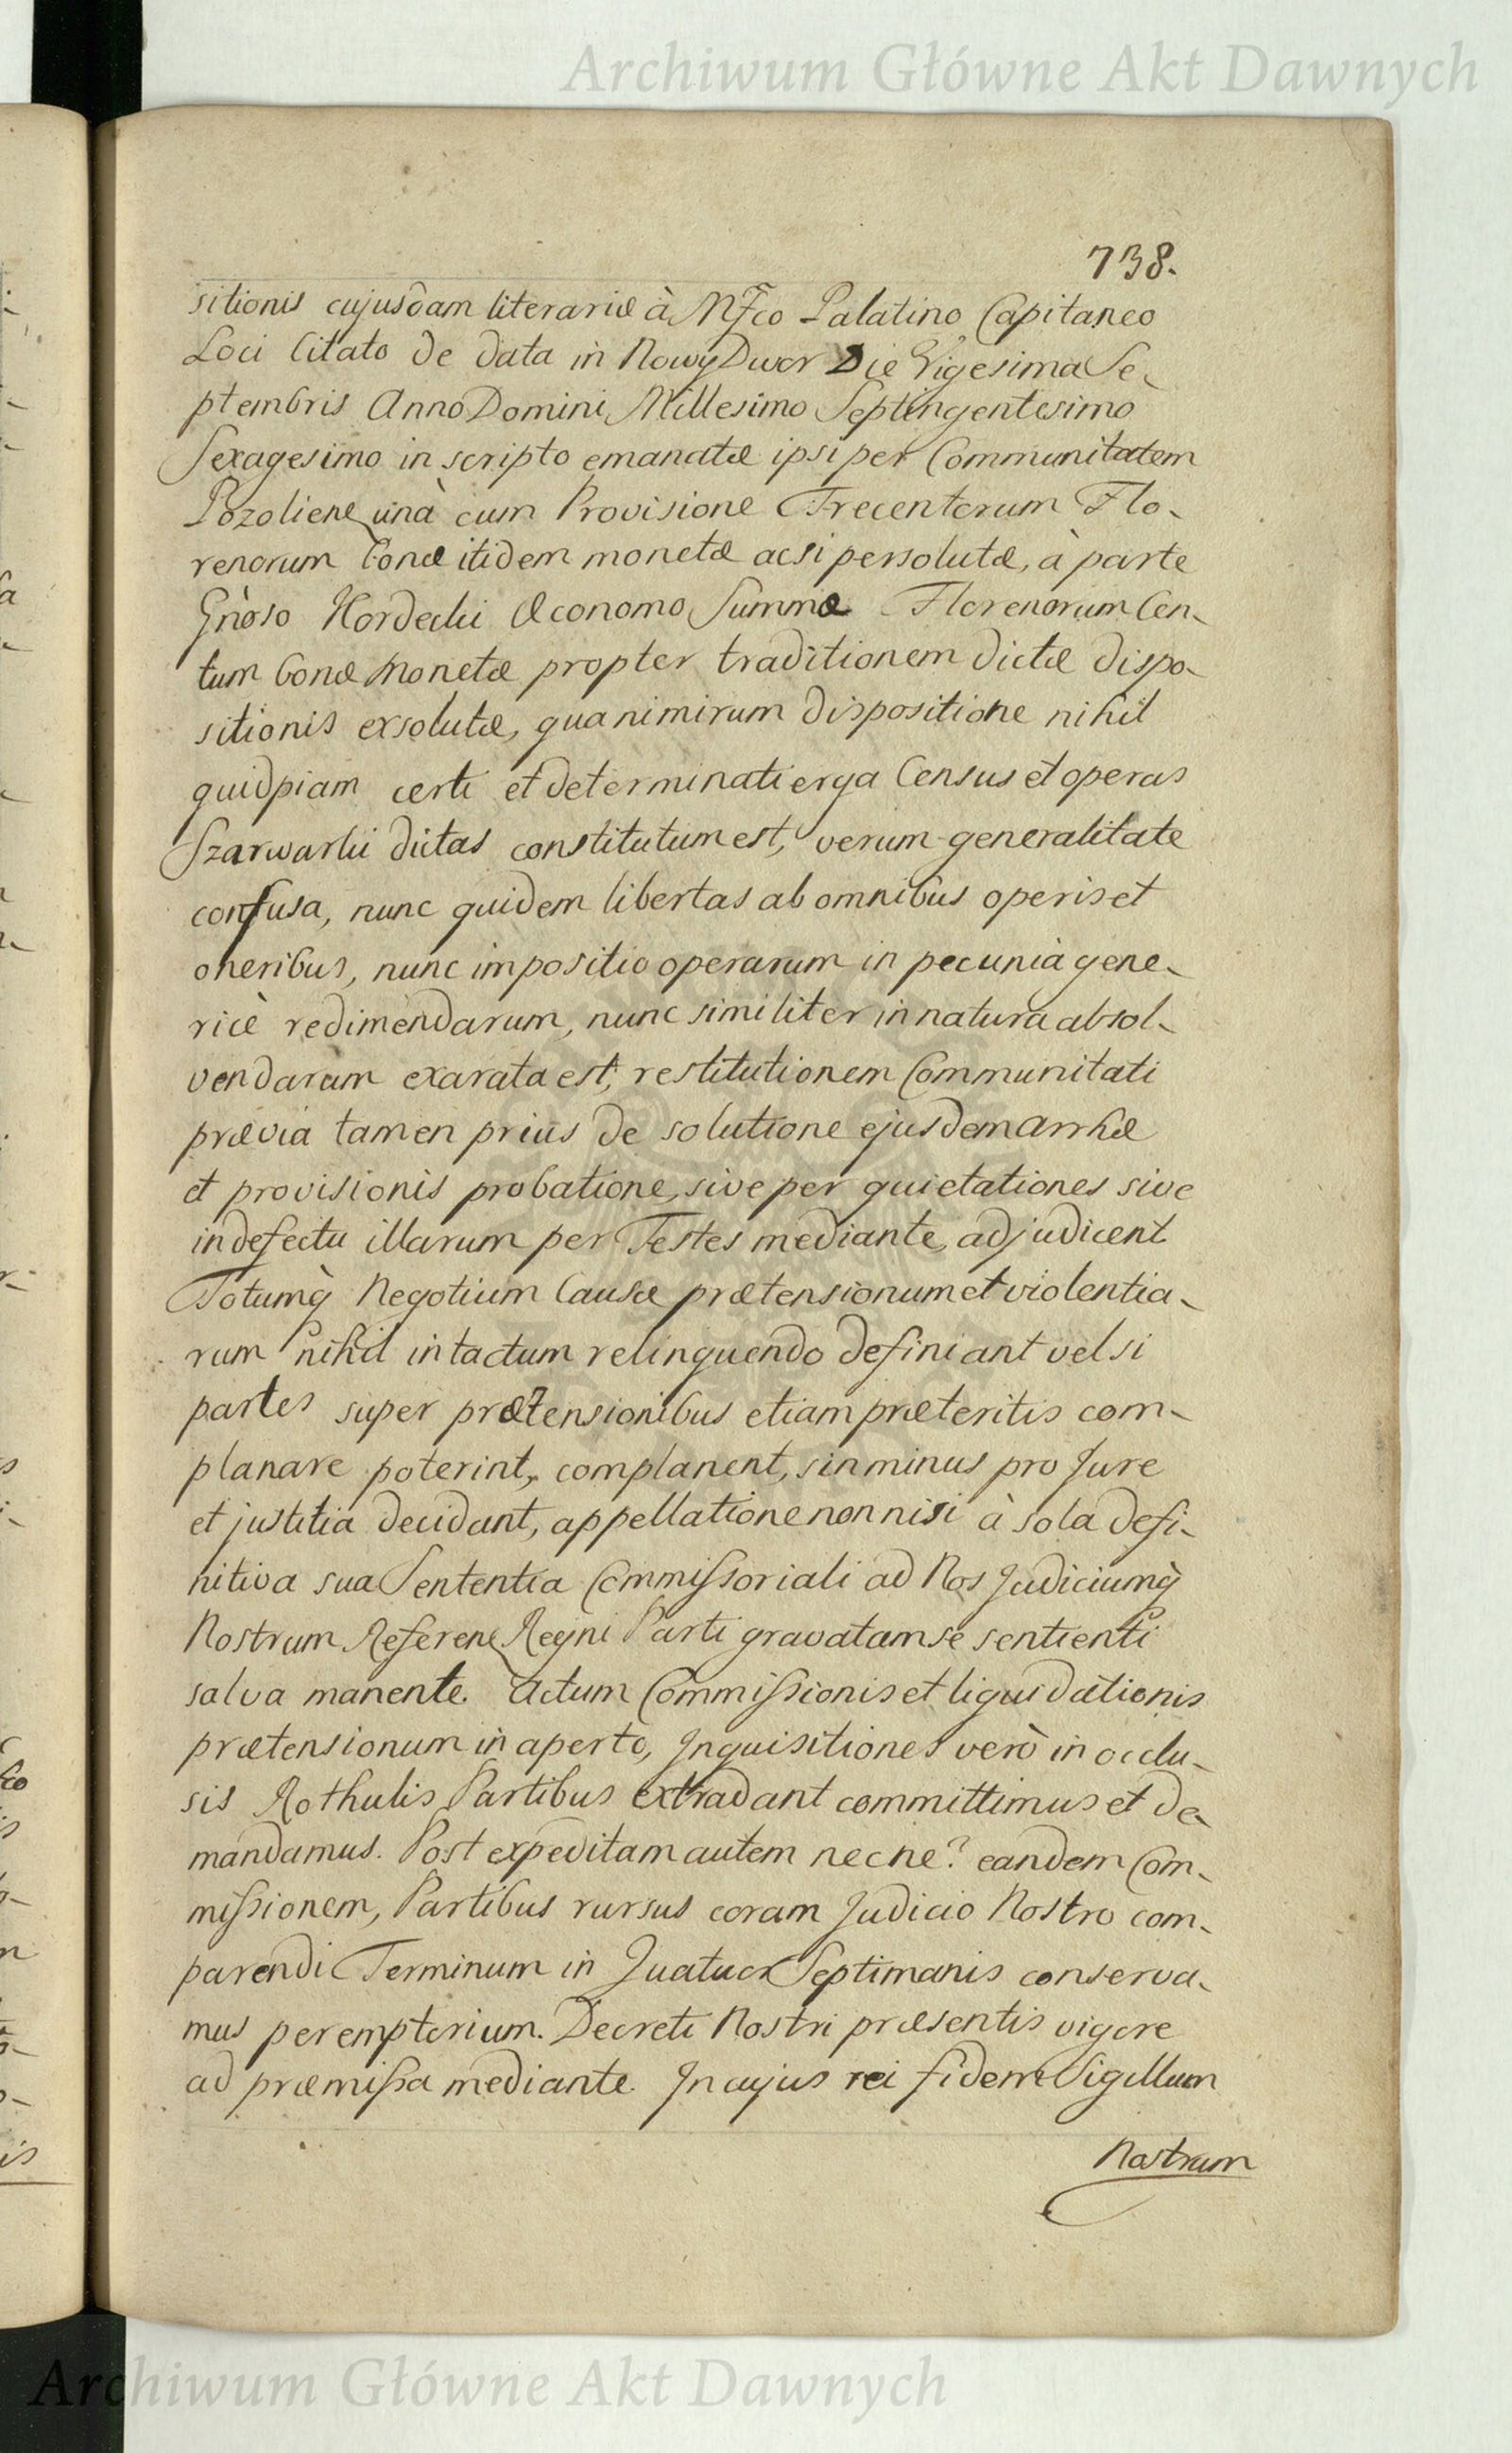 Archiwum Główne Akt Dawnych
738.
sitionis cujusdam literariæ à Mfco Palatino Capitaneo
Loci Citato de data in Nowy Dwor Die Vigesima Se-
ptembris Anno Domini Millesimo Septingentesimo
Sexagesimo in scripto emanatæ ipsi per Communitatem
Pozoliene unà cum Provisione Trecentorum Flo-
renorum bonæ itidem monetæ acsi persolutæ, à parte
Gnoso Hordecki Œconomo Summæ Florenorum Cen-
tum bonæ Monetæ propter traditionem dictæ dispo-
sitionis exsolutæ, qua nimirum dispositione nihil
quidpiam certi et determinati erga Census et operas
Szarwarki dictas constitutum est, verum generalitate
confusa, nunc quidem libertas ab omnibus operis et
oneribus, nunc impositio operarum in pecunià gene-
ricè redimendarum, nunc similiter in natura absol-
vendarum exarata est, restitutionem Communitati
prævia tamen prius de solutione ejusdem Arrhæ
et provisionis probatione, sive per quietationes sive
in defectu illarum per Testes mediante, adjudicent
Totumq̀ Negotium Causæ prætensionum et violentia-
rum nihil intactum relinquendo definiant vel si
partes super prætensionibus etiam præteritis com-
planare poterint, complanent, sin minus pro Jure
et justitia decidant, appellatione non nisi à sola defi-
nitiva sua Sententia Commissoriali ad Nos Judiciumq̀
Nostrum Referen Regni Parti gravatam se sentienti
salva manente. Actum Commissionis et liquidationis
prætensionum in aperto, Inquisitiones verò in occlu-
sis Rothulis Partibus extradant committimus et de-
mandamus. Post expeditam autem necne? eandem Com-
missionem, Partibus rursus coram Judicio Nostro com-
parendi Terminum in Quatuor Septimanis conserva-
mus peremptorium. Decreti Nostri præsentis vigore
ad præmissa mediante. In cujus rei fidem Sigillum
Nostrum
Archiwum Główne Akt Dawnych